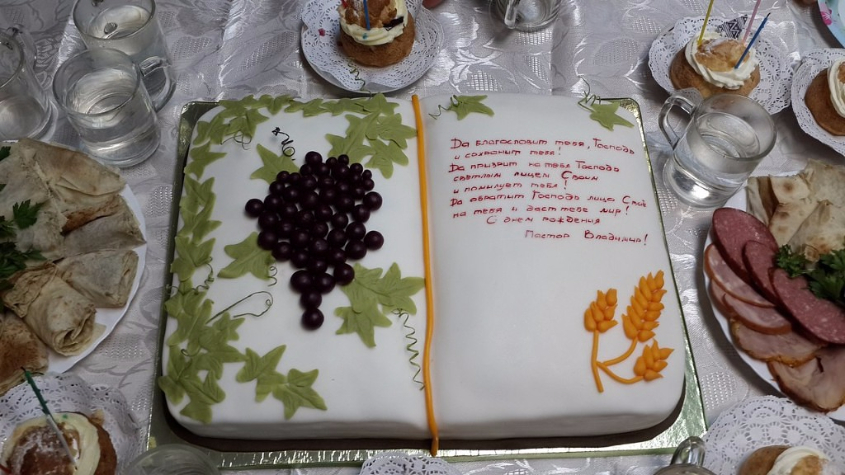 Да благословит тебя, Господь
и сохранит тебя!
Да призрит на тебя Господь
светлым лицем Своим
и помилует тебя!
Да обратит Господь лице Своё
на тебя и даст тебе мир!
С днем рождения
Пастор Владимир!